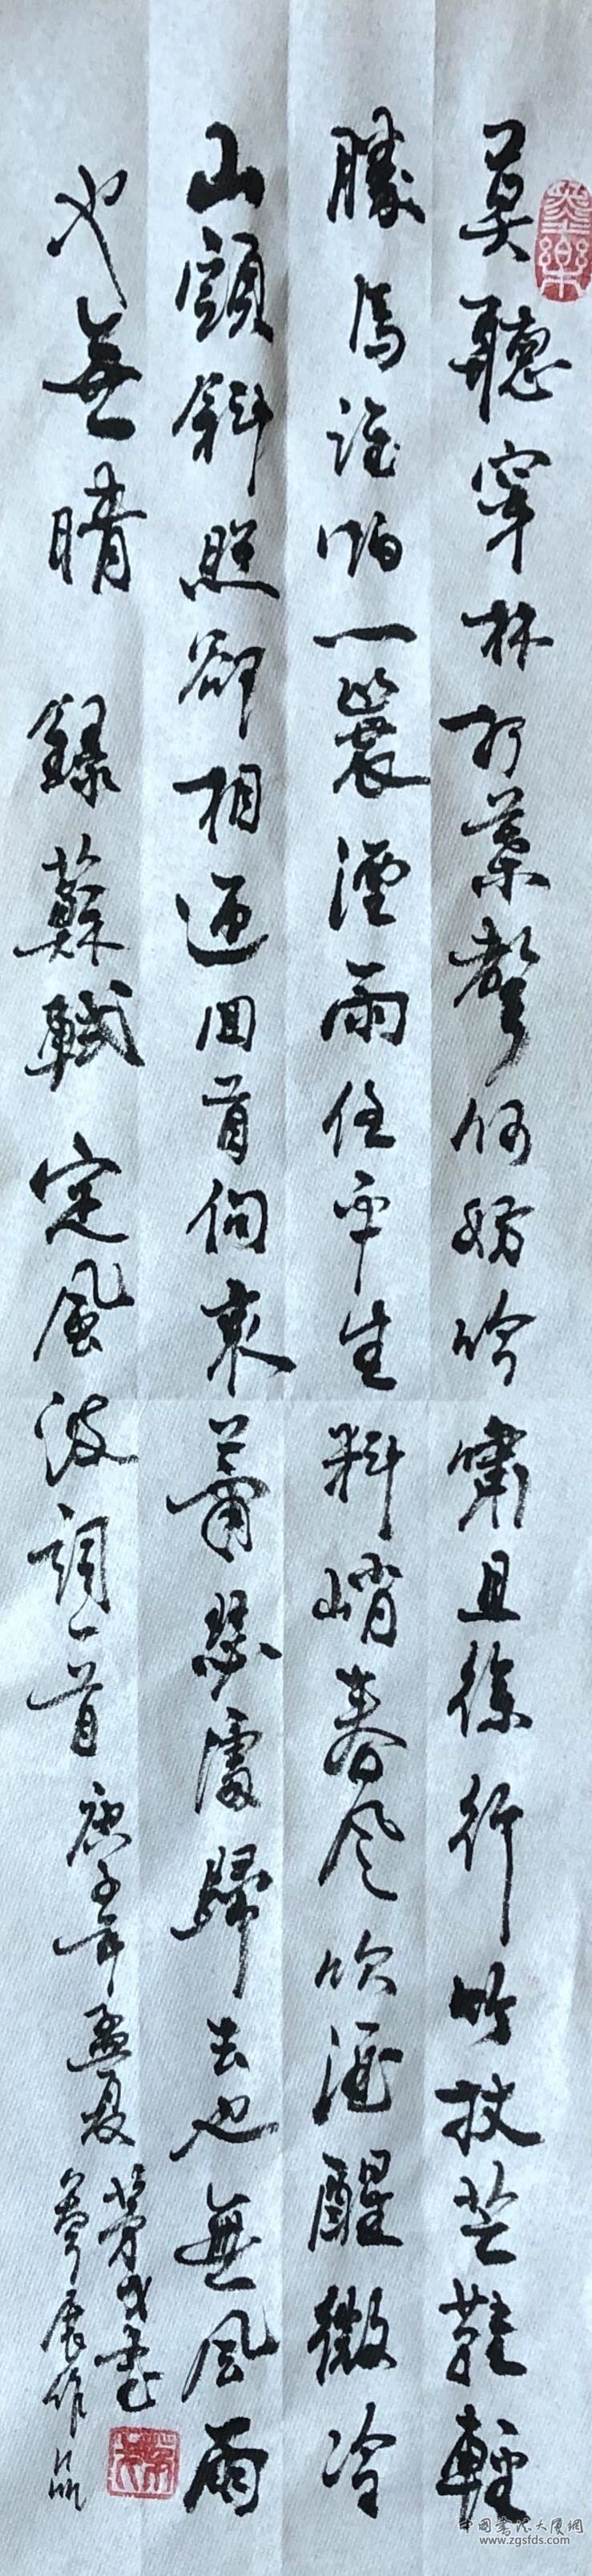 莫聽穿林打葉聲何妨吟嘯且徐行竹杖芒鞋輕
勝馬誰怕一蓑湮雨任平生料峭春风吹酒醒微冷
山頭斜照卻相迎回首向來蕭瑟處歸去也無風雨
也無晴 錄蘇軾定風波詞一首 庚子年孟夏
書
參展作品
墨樂
中国书法大厦網
www.zgsfds.com